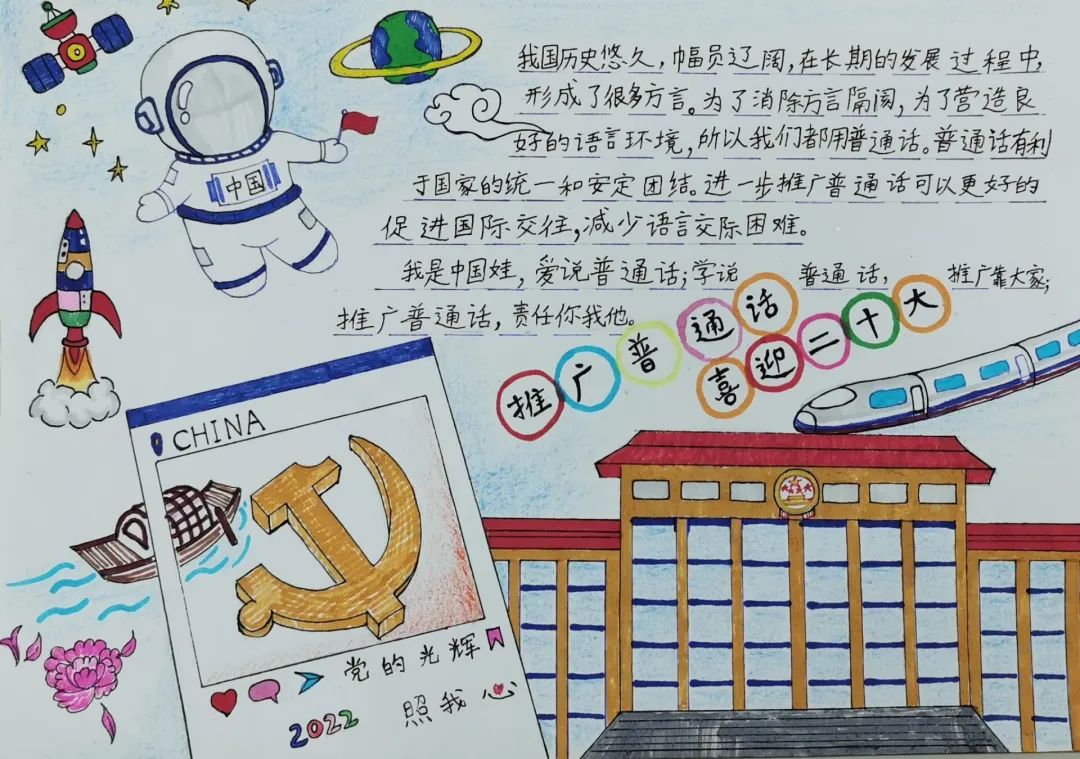 我国历史悠久，幅员辽阔，在长期的发展过程中，
形成了很多方言。为了消除方言隔阂，为了营造良
好的语言环境，所以我们都用普通话。普通话有利
于国家的统一和安定团结。进一步推广普通话可以更好的
促进国际交往，减少语言交际困难。
我是中国娃，爱说普通话；学说 普通话， 推广靠大家；
推广普通话，责任你我他。
中国
推广普通话
喜迎二十大
CHINA
党的光辉
照我心
2022